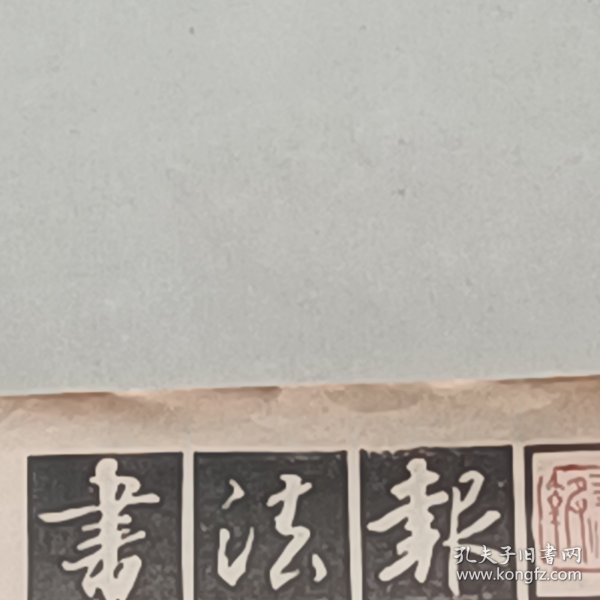 書法報
孔夫子旧書网
www.kongfz.com